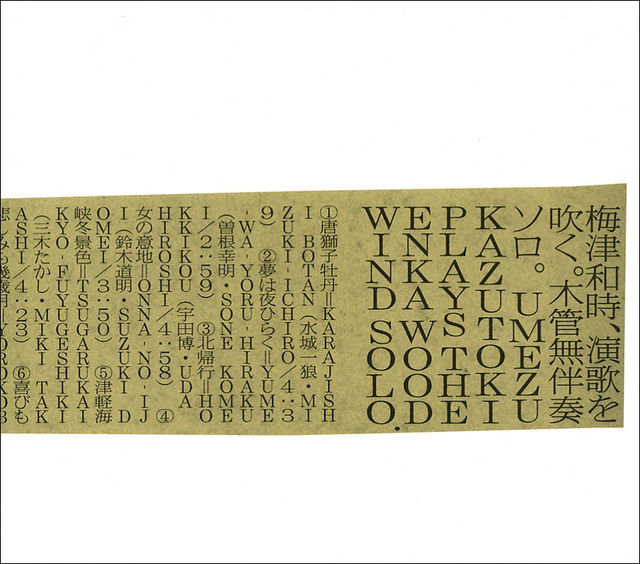 梅津和時、演歌を
吹く。木管無伴奏
ソロ。UMEZU
KAZUTOKI
PLAYS THE
ENKA WOOD
WIND SOLO.
①唐獅子牡丹=KARAJISH
I BOTAN (水城一狼・MI
ZUKI-ICHIRO/4:3
9) ②夢は夜ひらく=YUME
-WA-YORU-HIRAKU
(曽根幸明・SONE KOME
I/2:59) ③北帰行=HO
KKIKOU (宇田博・UDA
HIROSHI/4:58) ④
女の意地=ONNA-NO-IJ
I (鈴木道明・SUZUKI D
OMEI/3:50) ⑤津軽海
峡冬景色=TSUGARUKAI
KYO-FUYUGESHIKI
(三木たかし・MIKI TAK
ASHI/4:23) ⑥喜びも
悲しみも幾歳月=YOROKOB